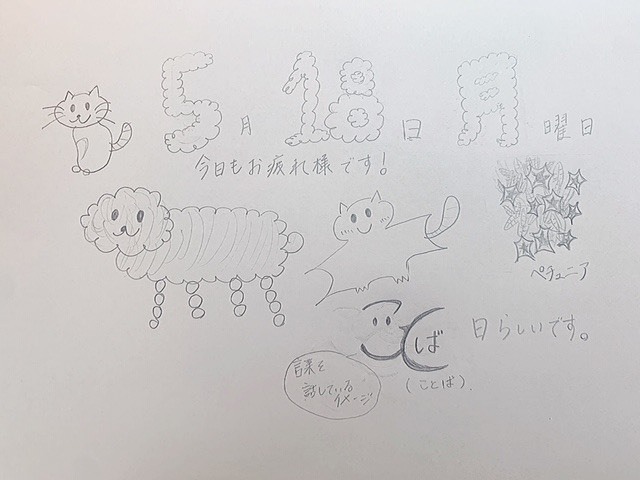 5月18日月曜日
今日もお疲れ様です！
ペチュニア
しば
日らしいです。
(ことば).
言葉を
話している
イメージ